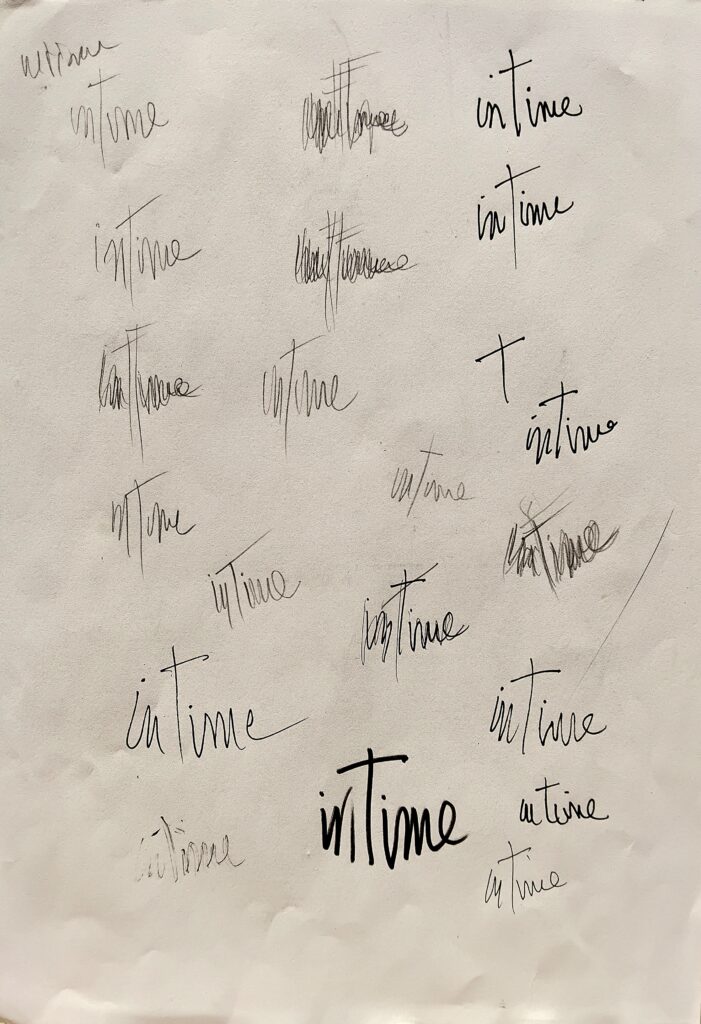 intime
intime
intime
intime
intime
intime
intime
intime
T
intime
intime
intime
intime
intime
intime
intime
intime
intime
intime
intime